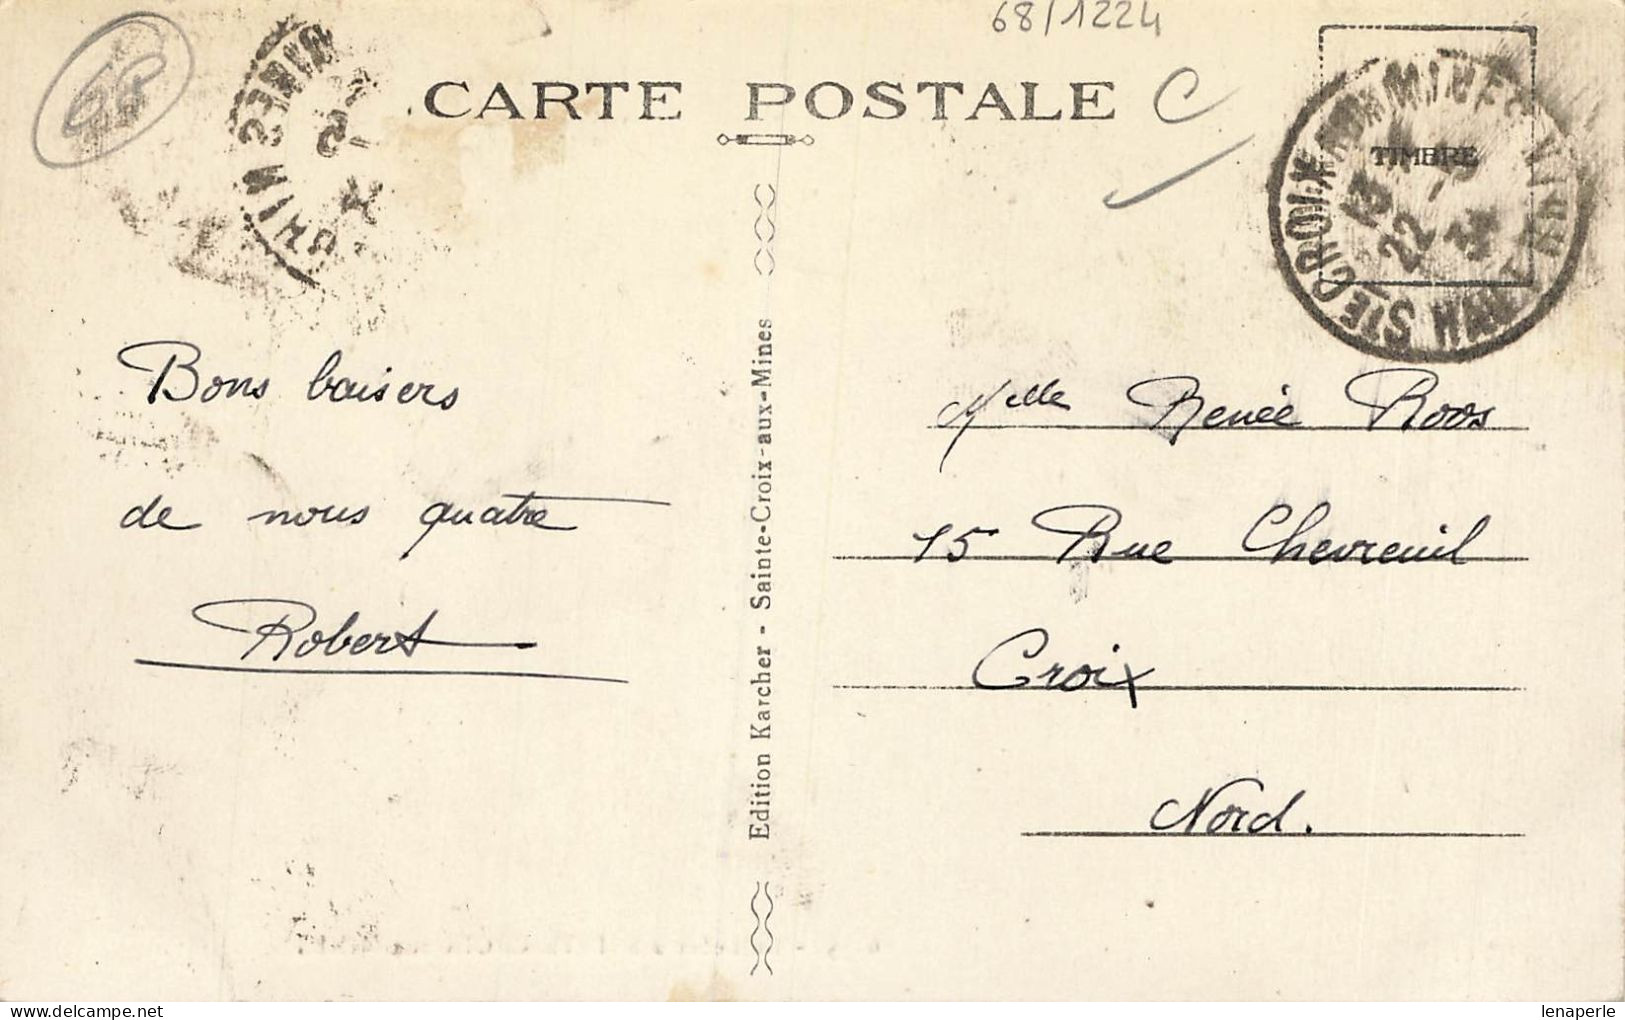 68/1224
68
CARTE POSTALE
C
TIMBRE
STE CROIX AUX MINES
HAUT RHIN
13
22 - 5
34
Bons baisers
de nous quatre
Robert
Edition Karcher - Sainte-Croix-aux-Mines
Melle Renée Roos
15 Rue Chevreuil
Croix
Nord.
delcampe.net
lenaperle